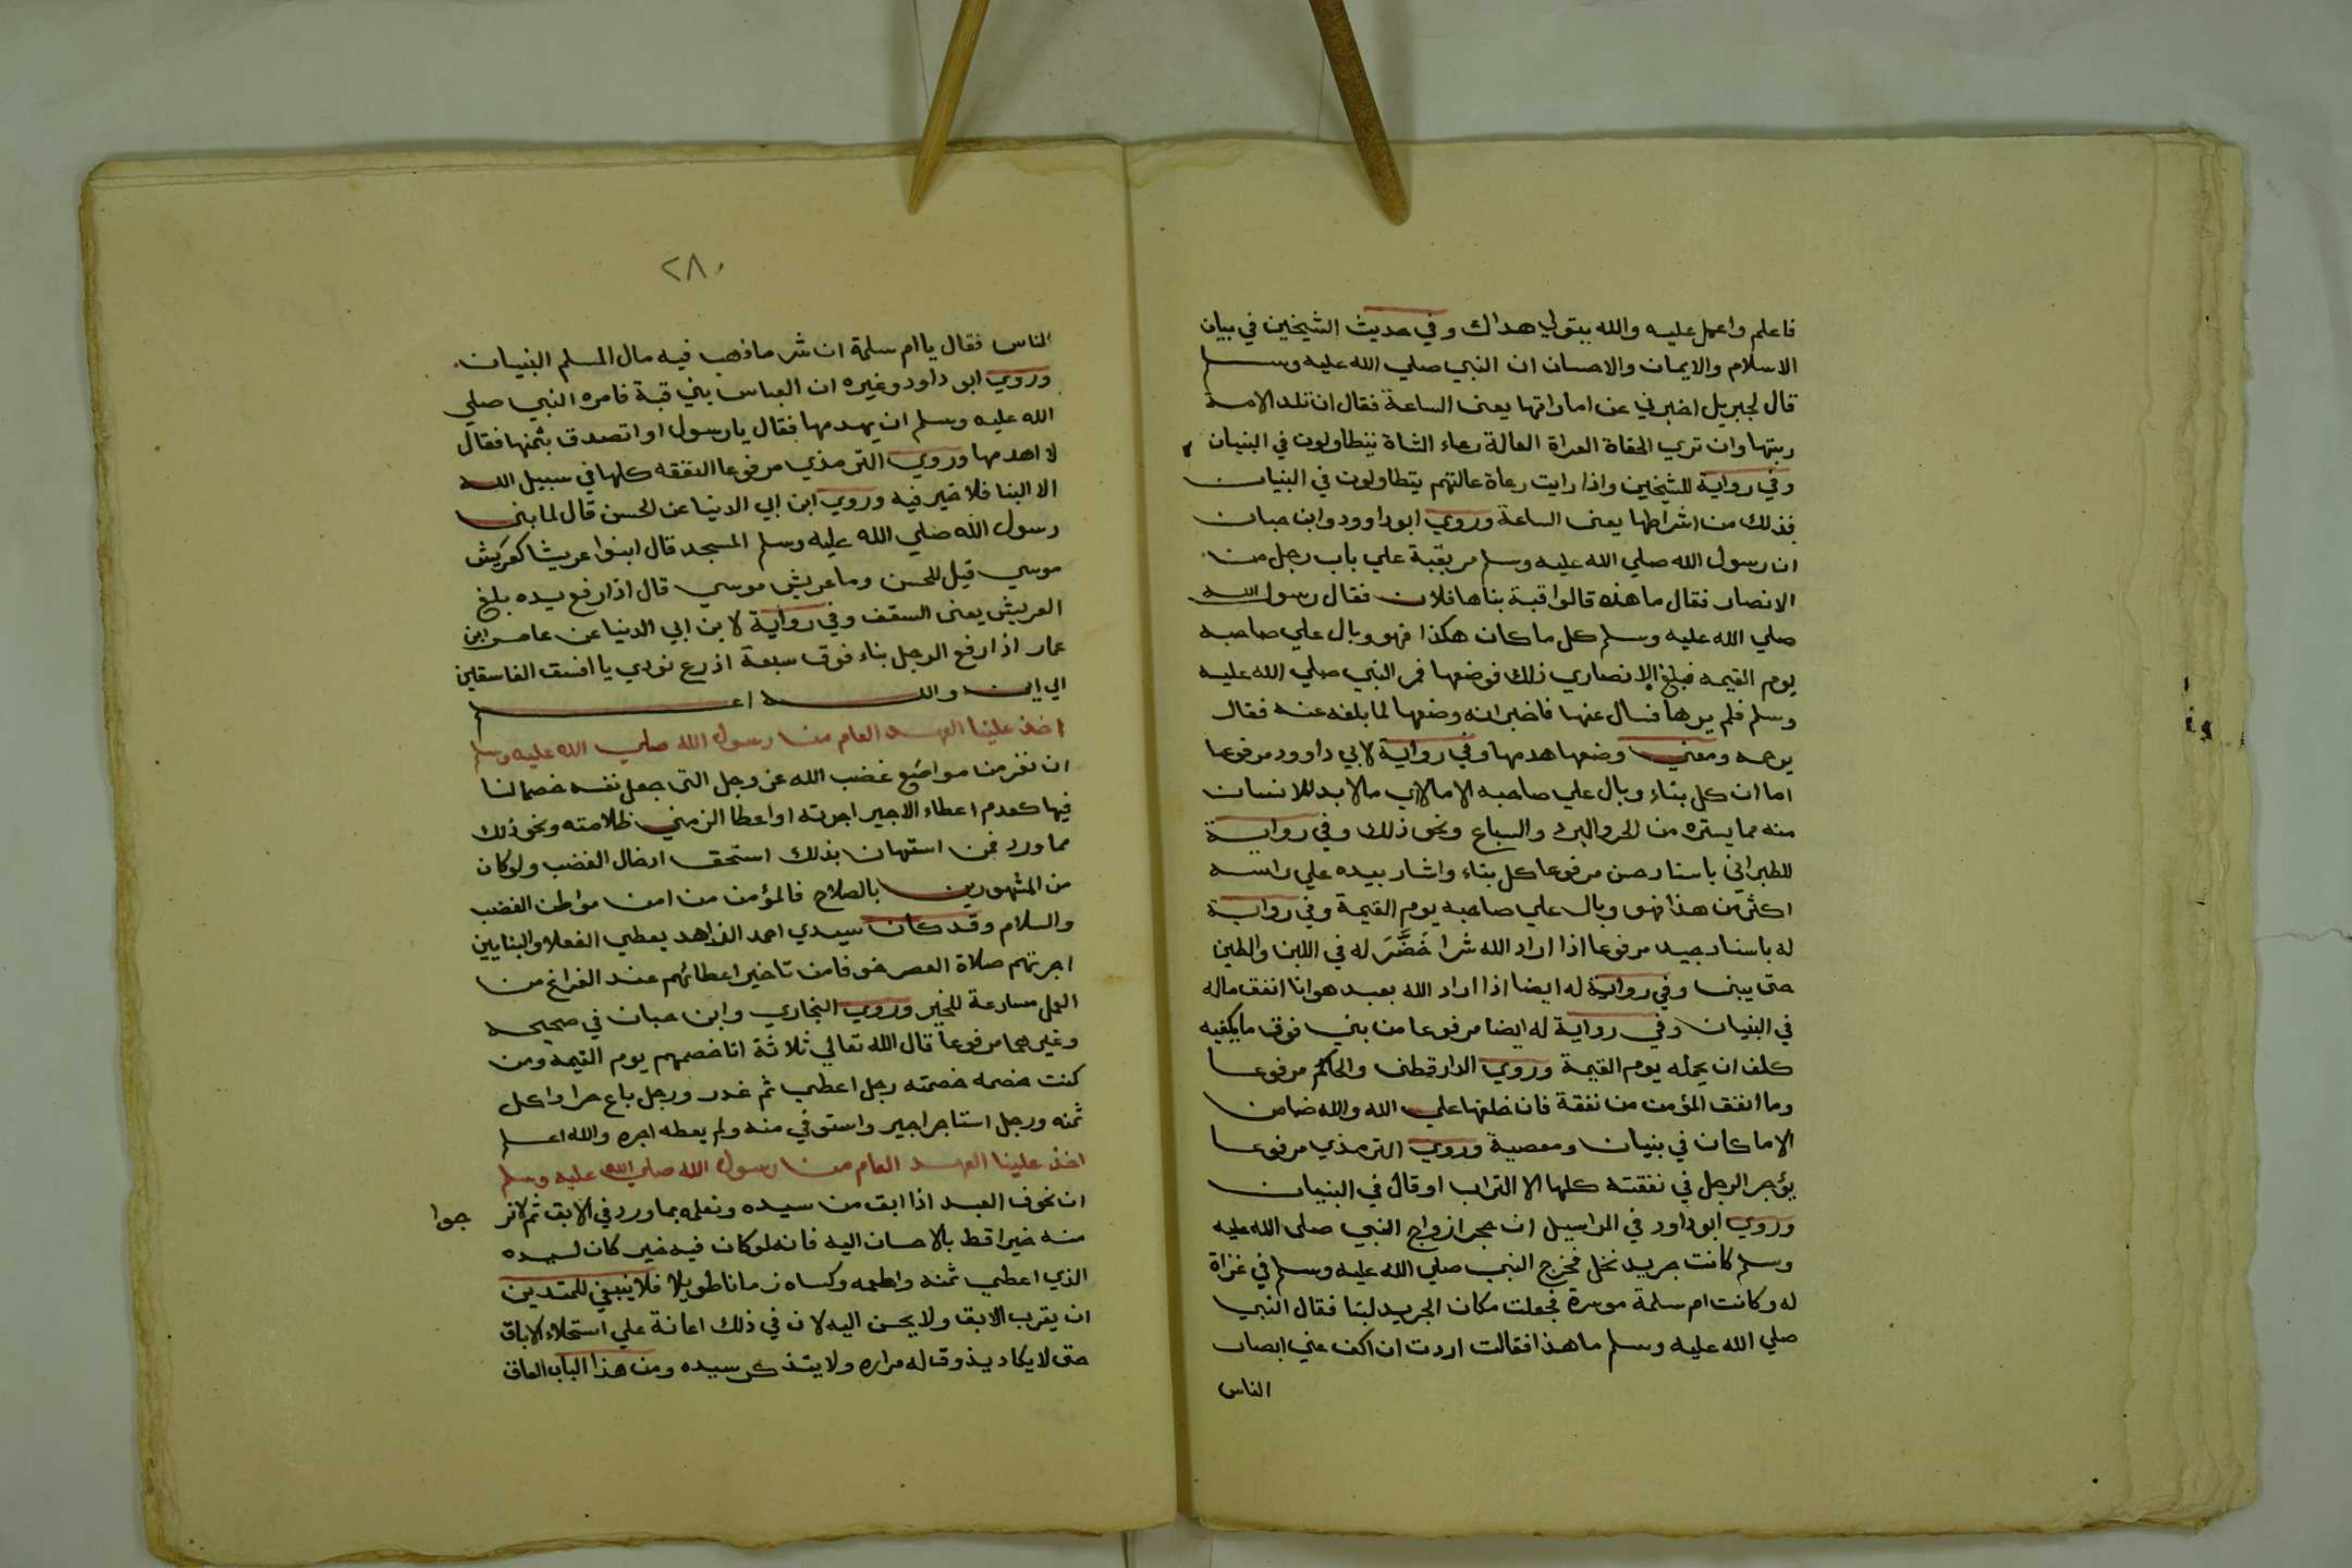 فاعلم واعمل عليه والله يتولي هداك وفي حديث الشيخين في بيان
الاسلام والايمان والاحسان ان النبي صلي الله عليه وسلم
قال لجبريل اخبرني عن اماراتها يعنى الساعة فقال ان تلد الامة
ربتها وان تري الحفاة العراة العالة رعاء الشاة يتطاولون في البنيان
وفي رواية للشيخين واذا رايت رعاة عالتهم يتطاولون في البنيان
فذلك من اشراطها يعنى الساعة وروي ابو داوود وابن حبان
ان رسول الله صلي الله عليه وسلم مر بقبة علي باب رجل من
الانصار فقال ما هذه قالوا قبة بناها فلان فقال رسول الله
صلي الله عليه وسلم كل ما كان هكذا فهو وبال علي صاحبه
يوم القيمه فبلغ الانصاري ذلك فوضعها فمر النبي صلي الله عليه
وسلم فلم يرها فسال عنها فاخبر انه وضعها لما بلغه عنه فقال
يرحمه ومعني وضعها هدمها وفي رواية لابي داوود مرفوعا
اما ان كل بناء وبال علي صاحبه الا مالا اي مالا بد للانسان
منه مما يستره من الحر والبرد والسباع ونحو ذلك وفي رواية
للطبراني باسناد حسن مرفوعا كل بناء واشار بيده علي راسه
اكثر من هذا فهو وبال علي صاحبه يوم القيمة وفي رواية
له باسناد جيد مرفوعا اذا اراد الله شرا خَضَّرَ له في اللبن والطين
حتى يبنى وفي رواية له ايضا اذا اراد الله بعبد هوانا انفق ماله
في البنيان وفي رواية له ايضا مرفوعا من بني فوق ما يكفيه
كلف ان يحمله يوم القيمة وروي الدارقطنى والحاكم مرفوعا
وما انفق المؤمن من نفقة فان خلفها علي الله والله ضامن
الا ما كان في بنيان ومعصية وروي الترمذي مرفوعا
يؤجر الرجل في نفقته كلها الا التراب او قال في البنيان
وروي ابو داود في المراسيل ان حجر ازواج النبي صلى الله عليه
وسلم كانت جريد نخل فخرج النبي صلي الله عليه وسلم في غزاة
له وكانت ام سلمة موسرة فجعلت مكان الجريد لبنا فقال النبي
صلي الله عليه وسلم ما هذا فقالت اردت ان اكف عني ابصار
الناس
٢٨٠
الناس فقال يا ام سلمة ان شر ما ذهب فيه مال المسلم البنيان
وروي ابو داود وغيره ان العباس بني قبة فامره النبي صلي
الله عليه وسلم ان يهدمها فقال يا رسول او اتصدق بثمنها فقال
لا اهدمها وروي الترمذي مرفوعا النفقه كلها في سبيل الله
الا البنا فلا خير فيه وروي ابن ابي الدنيا عن الحسن قال لما بنى
رسول الله صلي الله عليه وسلم المسجد قال ابنوا عريشا كعريش
موسي قيل للحسن وما عريش موسي قال اذا رفع يده بلغ
العريش يعنى السقف وفي رواية لابن ابي الدنيا عن عامر ابن
عمار اذا رفع الرجل بناء فوق سبعة اذرع نودي يا افسق الفاسقين
الي اين والله اعلم
اخذ علينا العهد العام من رسول الله صلي الله عليه وسلم
ان نفر من مواضع غضب الله عز وجل التى جعل نفسه خصما لنا
فيها كعدم اعطاء الاجير اجرته او اعطا الذمي ظلامته ونحو ذلك
مما ورد فمن استهان بذلك استحق ادخال الغضب ولو كان
من المشهورين بالصلاح فالمؤمن من امن مواطن الغضب
والسلام وقد كان سيدي احمد الزاهد يعطي الفعلا والبنايين
اجرتهم صلاة العصر خوفا من تاخير اعطائهم عند الفراغ من
العمل مسارعة للخير وروي البخاري وابن حبان في صحيحه
وغيرهما مرفوعا قال الله تعالي ثلاثة انا خصمهم يوم القيمه ومن
كنت خصمه خصمته رجل اعطي ثم غدر ورجل باع حرا واكل
ثمنه ورجل استاجر اجير واستوفي منه ولم يعطه اجره والله اعلم
اخذ علينا العهد العام من رسول الله صلي الله عليه وسلم
ان نخوف العبد اذا ابق من سيده ونعلمه بما ورد في الابق ثم لا نر
منه خيرا قط بالاحسان اليه فانه لو كان فيه خير كان لسيده
الذي اعطي ثمنه واطعمه وكساه زمانا طويلا فلا ينبغي للمتدين
ان يقرب الابق ولا يحسن اليه لان في ذلك اعانة علي استحلاء الاباق
حتى لا يكاد يذوق له مراره ولا يتذكر سيده ومن هذا الباب العاق